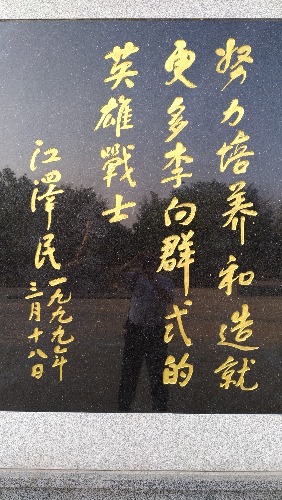 努力培养和造就
更多李向群式的
英雄戰士
江泽民
一九九九年
三月十八日